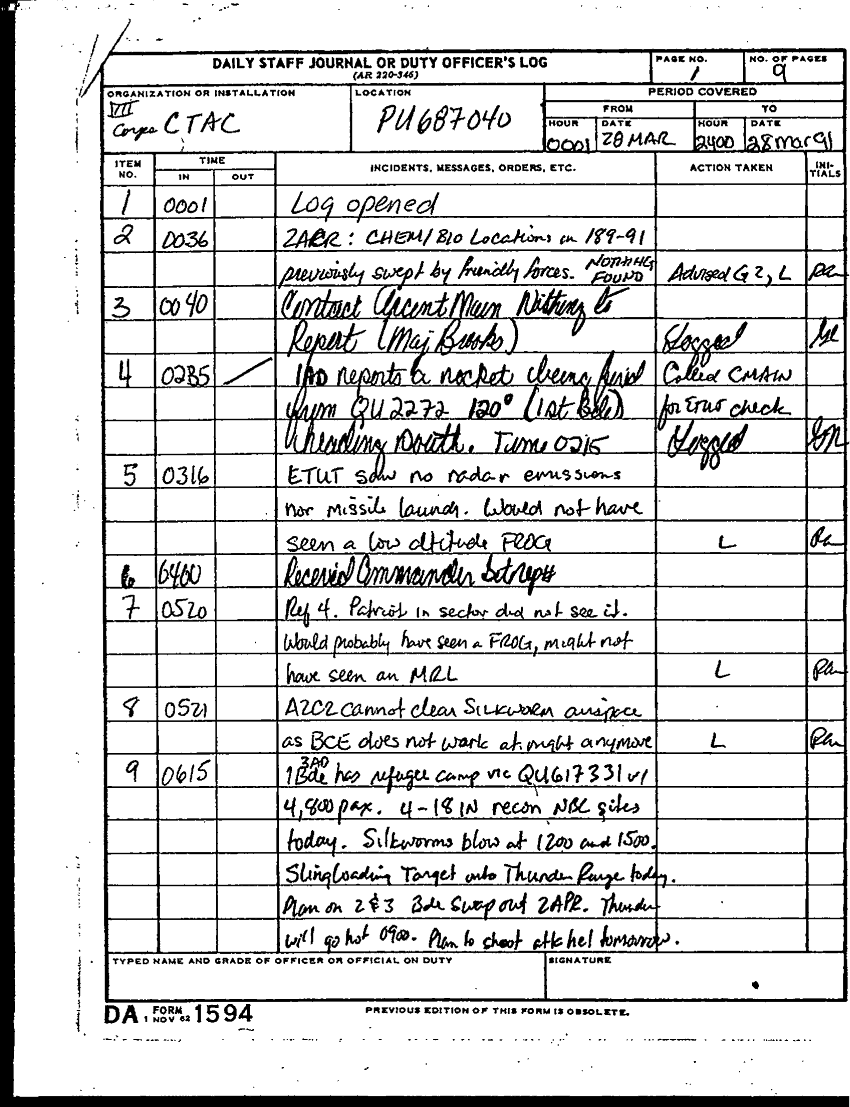 DAILY STAFF JOURNAL OR DUTY OFFICER'S LOG
(AR 220-346)
PAGE NO.
1
NO. OF PAGES
9
ORGANIZATION OR INSTALLATION
VII
Corps CTAC
LOCATION
PU687040
PERIOD COVERED
FROM
TO
HOUR
DATE
HOUR
DATE
0001
28 MAR
2400
28 Mar 91
ITEM NO.
TIME
IN
OUT
INCIDENTS, MESSAGES, ORDERS, ETC.
ACTION TAKEN
INI-TIALS
1 0001 Log opened
2 0036 2ACR: CHEM/BIO Locations on 189-91
previously swept by friendly forces. NOTHING FOUND Advised G2, L
3 0040 Contact Arcent Main Nothing to
Report (Maj Brooks) Logged
4 02 5 1AD reports a rocket being fired
from QU2272 120° (1st Bde) Called CMAIN
heading South. Time 0215 for ETUT check
Logged
5 0316 ETUT saw no radar emissions
nor missile launch. Would not have
seen a low altitude FROG L
6 0400 Received Commander sitreps
7 0520 Ref 4. Patriot in sector did not see it.
Would probably have seen a FROG, might not
have seen an MRL L
8 0521 A2C2 cannot clear SILKWORM airspace
as BCE does not work at night anymore L
9 0615 1Bde 3AD has refugee camp vic QU617331 w/
4,800 pax. 4-18 IN recon NBC sites
today. Silkworms blow at 1200 and 1500.
Slingloading Target onto Thunder Range today.
Plan on 2 & 3 Bde Swap out 2APR. Thunder
will go hot 0900. Plan to shoot atk hel tomorrow.
TYPED NAME AND GRADE OF OFFICER OR OFFICIAL ON DUTY
SIGNATURE
DA FORM 1 NOV 62 1594
PREVIOUS EDITION OF THIS FORM IS OBSOLETE.